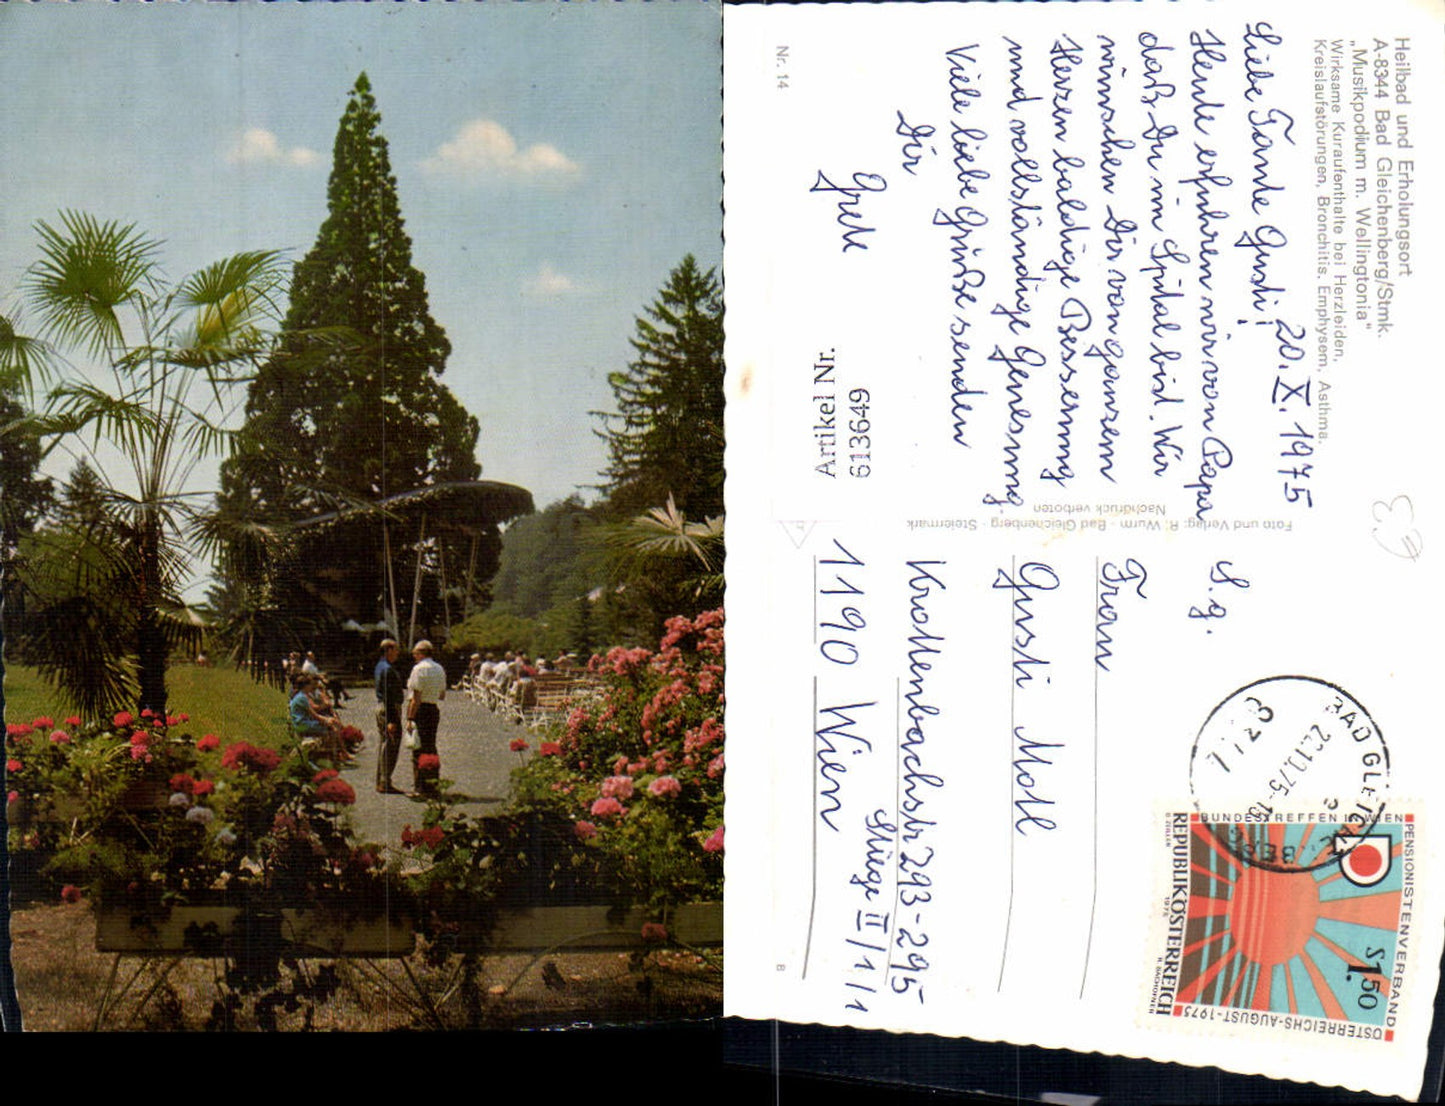 Heilbad und Erholungsort
A-8344 Bad Gleichenberg/Stmk.
„Musikpodium m. Wellingtonia"
Wirksame Kuraufenthalte bei Herzleiden,
Kreislaufstörungen, Bronchitis, Emphysem, Asthma.
20. X. 1975
Liebe Tante Gusti!
Heute erfuhren wir von Papa
daß Du im Spital bist. Wir
wünschen Dir von ganzem
Herzen baldige Besserung
und vollständige Genesung.
Viele liebe Grüße senden
Dir
Grete
Nr. 14
Artikel Nr.
613649
Foto und Verlag: R. Wurm - Bad Gleichenberg - Steiermark
Nachdruck verboten
S. g.
Frau
Gusti Moll
Krottenbachstr 293-295
Stiege II/1/1
1190 Wien
B
BAD GLEICHENBERG
20.10.75-18
BUNDESTREFFEN IN WIEN
PENSIONISTENVERBAND
ÖSTERREICHS-AUGUST-1975
S 1.50
REPUBLIK ÖSTERREICH
O. ZEILLER
1975
H. BACHOFNER